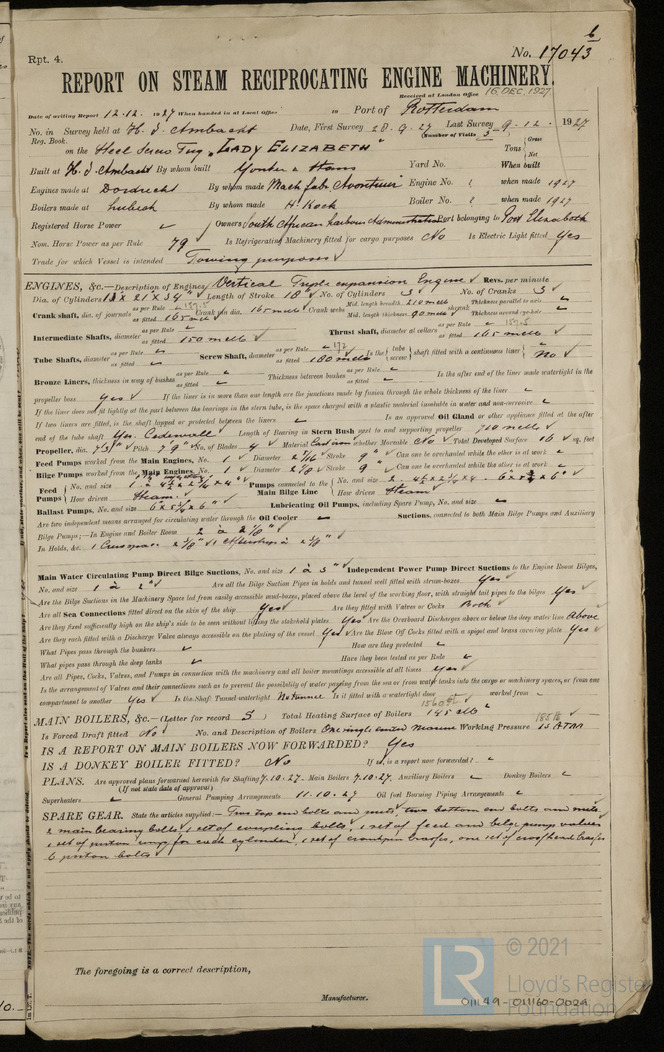 6
Rpt. 4.
No. 17043
REPORT ON STEAM RECIPROCATING ENGINE MACHINERY.
Received at London Office 16 DEC. 1927
Date of writing Report 12.12.1927 When handed in at Local Office to Port of Rotterdam
No. in Survey held at H. I. Ambacht Date, First Survey 28.9.27 Last Survey 9.12.1927
Reg. Book. (Number of Visits 3)
on the Steel Screw Tug "LADY ELIZABETH" Tons Gross Net
Built at H. I. Ambacht By whom built Yard No. When built
Engines made at Dordrecht By whom made Mach. fab. Engine No. ? when made 1927
Boilers made at Lubeck By whom made H. Koch Boiler No. ? when made 1927
Registered Horse Power Owners South African Harbour Administration Port belonging to Port Elizabeth
Nom. Horse Power as per Rule 79 Is Refrigerating Machinery fitted for cargo purposes No Is Electric Light fitted Yes
Trade for which Vessel is intended Towing purposes
ENGINES, &c.—Description of Engines Vertical Triple expansion Engine Revs. per minute
Dia. of Cylinders 13 x 21 x 34" Length of Stroke 18" No. of Cylinders 3 No. of Cranks 3
Crank shaft, dia. of journals as per Rule 157.5 as fitted 165 mm Crank pin dia. 165 mm Crank webs Mid. length breadth 210 mm Mid. length thickness 90 mm shrunk Thickness parallel to axis Thickness around eye-hole
Intermediate Shafts, diameter as per Rule as fitted 150 mm Thrust shaft, diameter at collars as per Rule 157.5 as fitted 165 mm
Tube Shafts, diameter as per Rule as fitted Screw Shaft, diameter as per Rule 172 as fitted 180 mm Is the tube screw shaft fitted with a continuous liner No
Bronze Liners, thickness in way of bushes as per Rule as fitted Thickness between bushes as per Rule as fitted Is the after end of the liner made watertight in the
propeller boss Yes If the liner is in more than one length are the junctions made by fusion through the whole thickness of the liner
If the liner does not fit tightly at the part between the bearings in the stern tube, is the space charged with a plastic material insoluble in water and non-corrosive
If two liners are fitted, is the shaft lapped or protected between the liners Is an approved Oil Gland or other appliance fitted at the after
end of the tube shaft Yes. Cedervall Length of Bearing in Stern Bush next to and supporting propeller 710 mm
Propeller, dia. Pitch 7'9" No. of Blades 4 Material Cast iron whether Moveable No Total Developed Surface 16 sq. feet
Feed Pumps worked from the Main Engines, No. 1 Diameter 2 7/16" Stroke 9" Can one be overhauled while the other is at work
Bilge Pumps worked from the Main Engines, No. 1 Diameter 2 7/8" Stroke 9" Can one be overhauled while the other is at work
Feed Pumps No. and size How driven Steam Pumps connected to the Main Bilge Line No. and size How driven Steam
Ballast Pumps, No. and size Lubricating Oil Pumps, including Spare Pump, No. and size
Are two independent means arranged for circulating water through the Oil Cooler Suctions, connected to both Main Bilge Pumps and Auxiliary
Bilge Pumps;—In Engine and Boiler Room 2 à 2 1/8"
In Holds, &c. 2 1/8"
Main Water Circulating Pump Direct Bilge Suctions, No. and size 1 à 3" Independent Power Pump Direct Suctions to the Engine Room Bilges,
No. and size 1 à 2" Are all the Bilge Suction Pipes in holds and tunnel well fitted with strum-boxes Yes
Are the Bilge Suctions in the Machinery Space led from easily accessible mud-boxes, placed above the level of the working floor, with straight tail pipes to the bilges Yes
Are all Sea Connections fitted direct on the skin of the ship Yes Are they fitted with Valves or Cocks Both
Are they fixed sufficiently high on the ship's side to be seen without lifting the stokehold plates Yes Are the Overboard Discharges above or below the deep water line Above
Are they each fitted with a Discharge Valve always accessible on the plating of the vessel Yes Are the Blow Off Cocks fitted with a spigot and brass covering plate Yes
What Pipes pass through the bunkers How are they protected
What pipes pass through the deep tanks Have they been tested as per Rule
Are all Pipes, Cocks, Valves, and Pumps in connection with the machinery and all boiler mountings accessible at all times Yes
Is the arrangement of Valves and their connections such as to prevent the possibility of water passing from the sea or from water tanks into the cargo or machinery spaces, or from one
compartment to another Yes Is the Shaft Tunnel watertight No tunnel Is it fitted with a watertight door worked from
MAIN BOILERS, &c.—(Letter for record S) Total Heating Surface of Boilers
Is Forced Draft fitted No No. and Description of Boilers One single ended marine Working Pressure 13 ATM
IS A REPORT ON MAIN BOILERS NOW FORWARDED? Yes
IS A DONKEY BOILER FITTED? No If so, is a report now forwarded?
PLANS. Are approved plans forwarded herewith for Shafting 7.10.27. Main Boilers 7.10.27. Auxiliary Boilers Donkey Boilers
(If not state date of approval)
Superheaters General Pumping Arrangements 11.10.27 Oil fuel Burning Piping Arrangements
SPARE GEAR. State the articles supplied:— Two top end bolts and nuts, two bottom end bolts and nuts.
2 main bearing bolts, 1 set of coupling bolts, 1 set of feed and bilge pump valves
1 set of piston rings for each cylinder, 1 set of crankpin brasses, one set of crosshead brasses
6 piston bolts
The foregoing is a correct description,
Manufacturer.
LR © 2021
Lloyd's Register
Foundation
011149-011160-0029